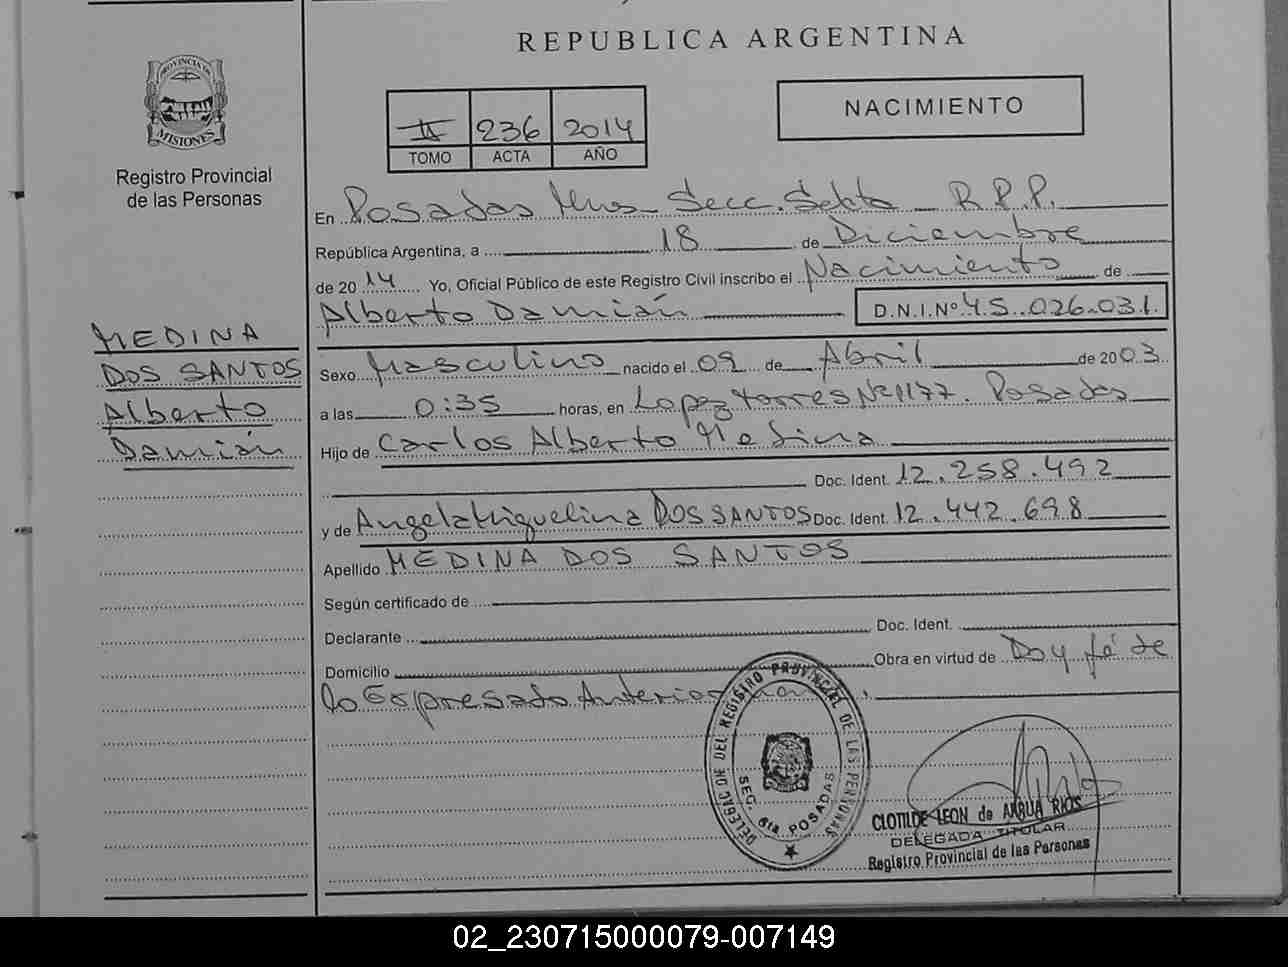 REPUBLICA ARGENTINA
PROVINCIA DE
MISIONES
Registro Provincial
de las Personas
II 236 2014
TOMO ACTA AÑO
NACIMIENTO
En Posadas Mnes Secc. Sexta R.P.P.
República Argentina, a 18 de Diciembre
de 2014 Yo, Oficial Público de este Registro Civil inscribo el Nacimiento de
Alberto Damián D.N.I.Nº 45.026.031.
MEDINA
DOS SANTOS
Alberto
Damián
Sexo Masculino nacido el 09 de Abril de 2003
a las 0:35 horas, en Lopez Torres Nº 1177. Posadas
Hijo de Carlos Alberto Medina
Doc. Ident. 12.258.492
y de Angela Miguelina DOS SANTOS Doc. Ident. 12.442.698
Apellido MEDINA DOS SANTOS
Según certificado de
Declarante Doc. Ident.
Domicilio Obra en virtud de Doy fé de
lo Expresado
DELEGAC DE DEL REGISTRO PROVINCIAL DE LAS PERSONAS
SEC. 6ta POSADAS
CLOTILDE LEON de ARBUA RIOS
DELEGADA TITULAR
Registro Provincial de las Personas
02_230715000079-007149